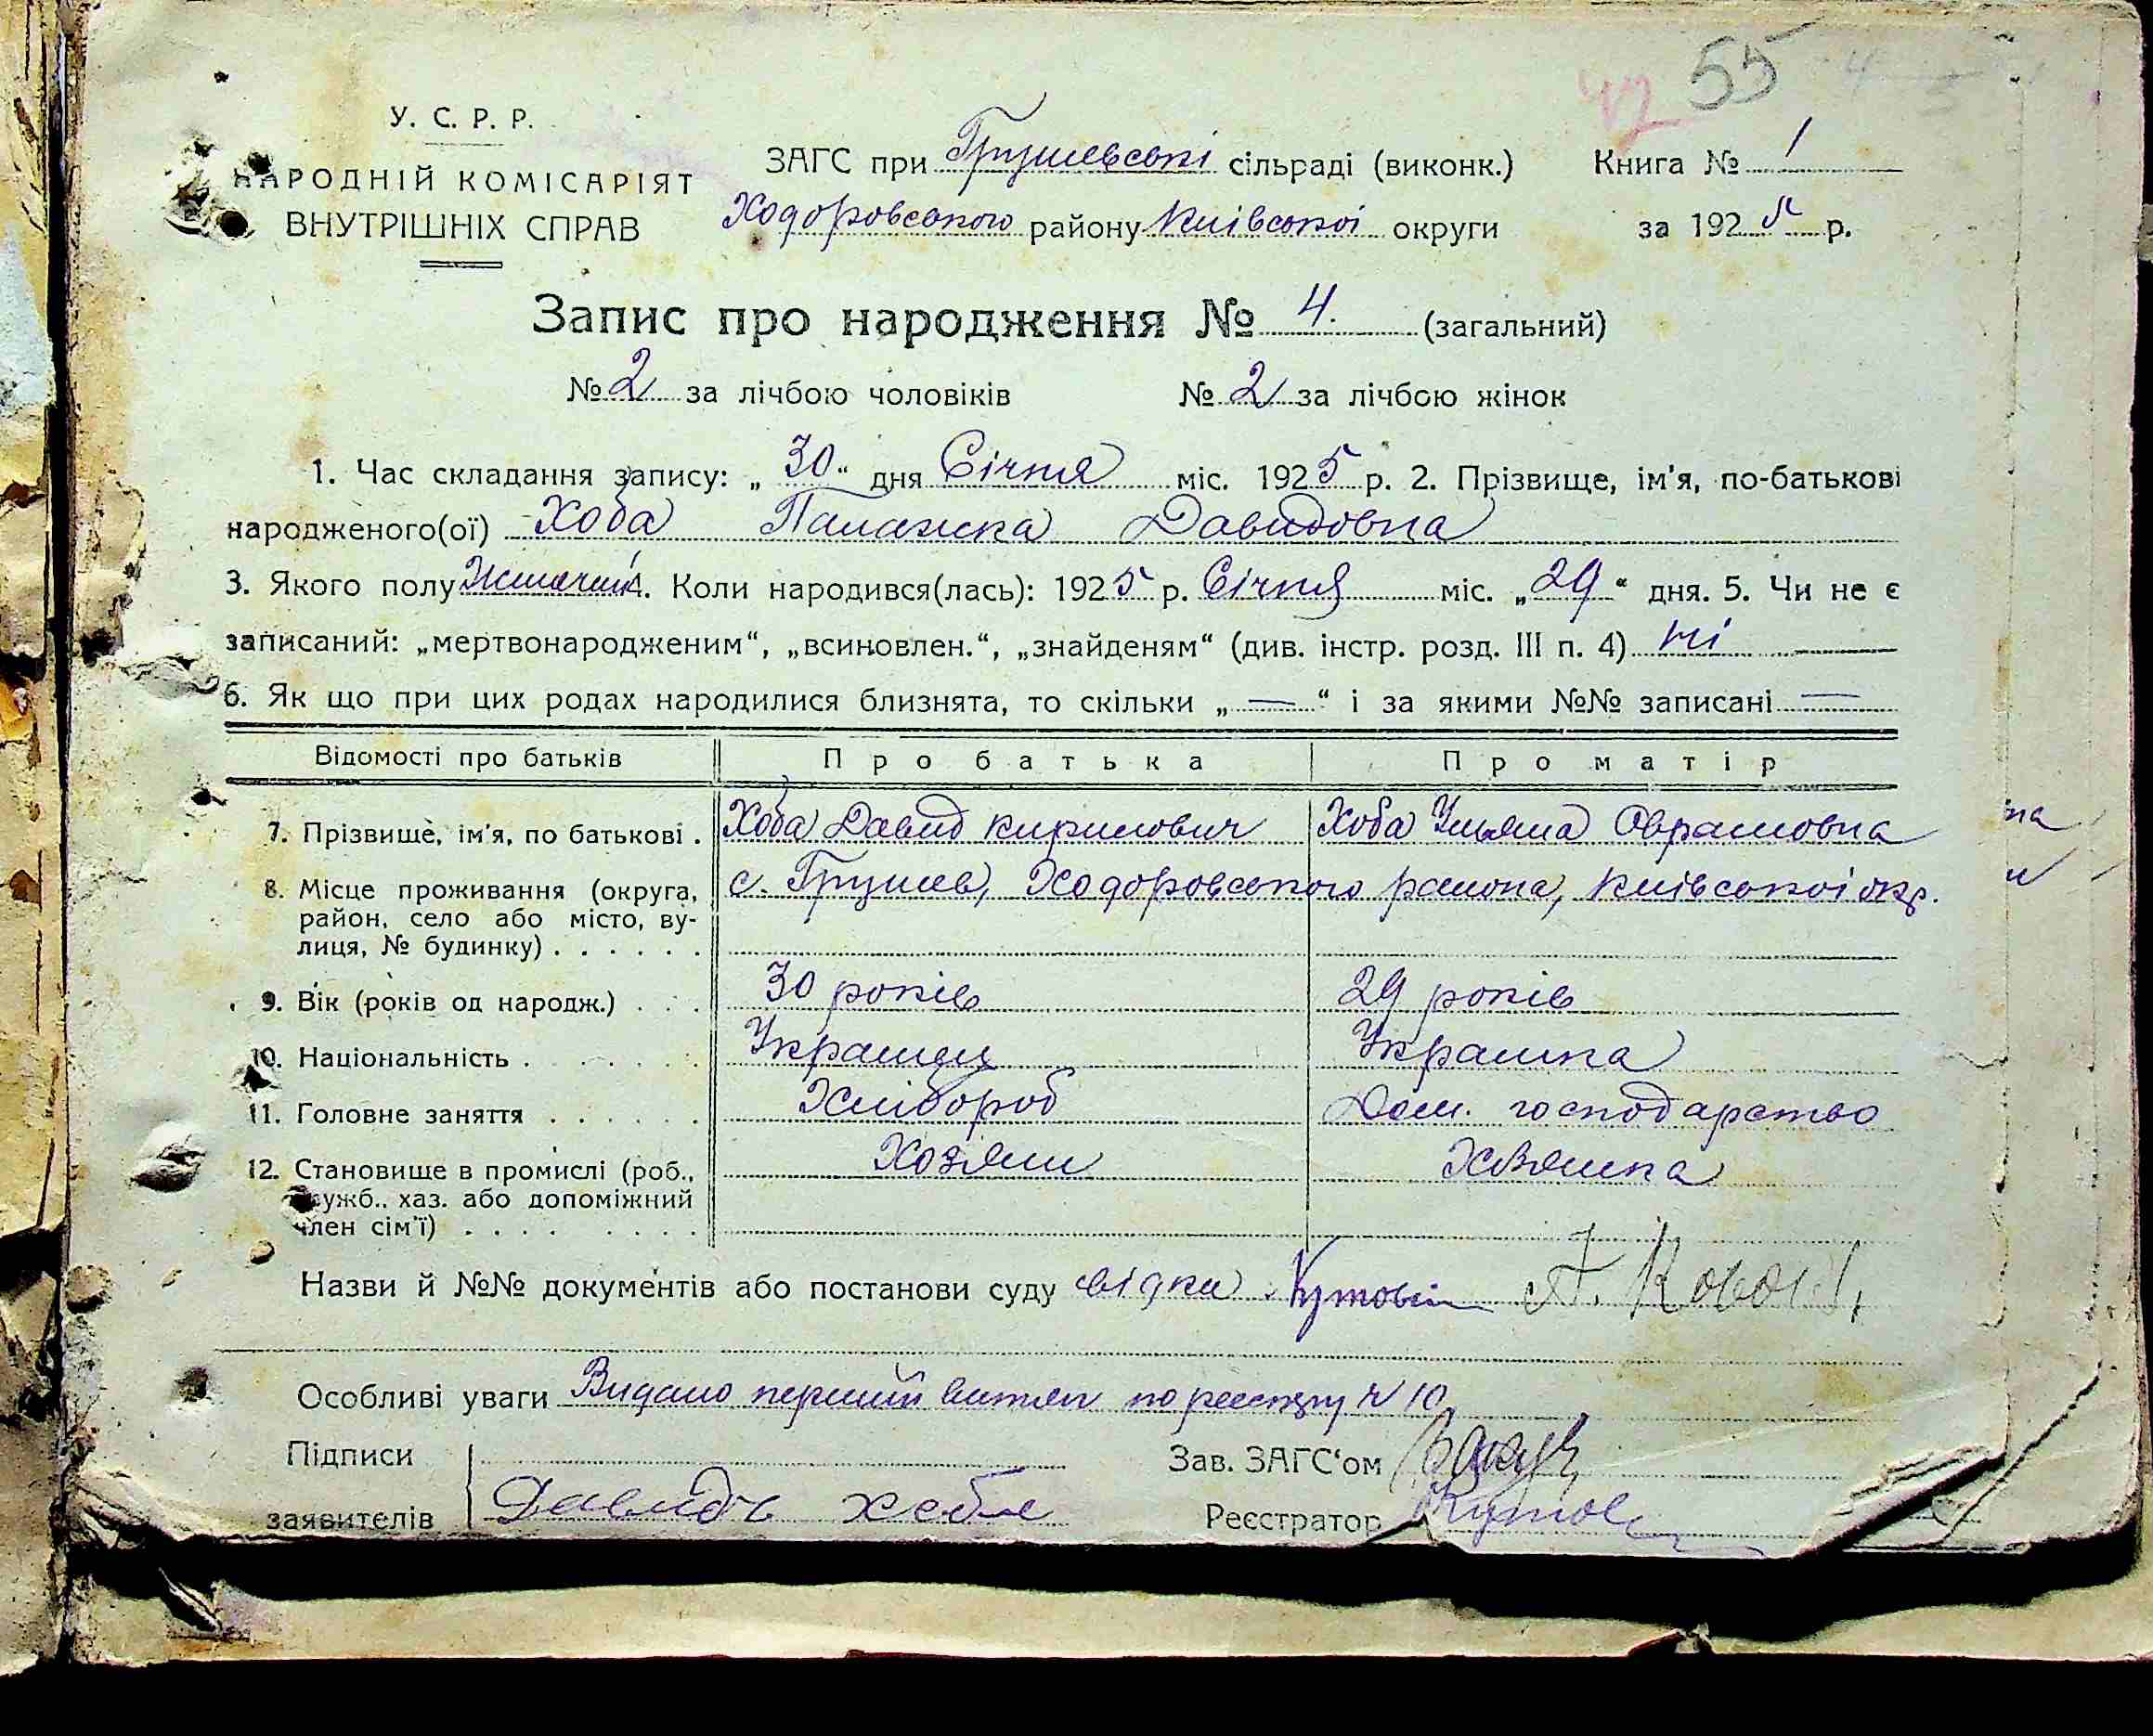 55
42
У. С. Р. Р.
НАРОДНІЙ КОМІСАРІЯТ
ВНУТРІШНІХ СПРАВ
ЗАГС при Грушевські сільраді (виконк.) Книга № 1
Ходоровського району Київської округи за 1925 р.
Запис про народження № 4. (загальний)
№ 2 за лічбою чоловіків № 2 за лічбою жінок
1. Час складання запису: „30“ дня Січня міс. 1925 р. 2. Прізвище, ім'я, по-батькові
народженого(ої) Хоба Палажка Давидовна
3. Якого полу Жіночий 4. Коли народився(лась): 1925 р. Січня міс. „29“ дня. 5. Чи не є
записаний: „мертвонародженим“, „всиновлен.“, „знайденям“ (див. інстр. розд. III п. 4) ні —
6. Як що при цих родах народилися близнята, то скільки „—“ і за якими №№ записані —
Відомості про батьків Про батька Про матір
7. Прізвище, ім'я, по батькові . Хоба Давид Кирилович Хоба Ульяна Оврамовна
8. Місце проживання (округа, с. Грушев, Ходоровського района, Київської окр.
район, село або місто, ву-
лиця, № будинку) . . . . . .
9. Вік (років од народж.) . . . 30 років 29 років
10. Національність . . . . . . Украинец Украинка
11. Головне заняття . . . . . . Хлібороб Дом. господарство
12. Становище в промислі (роб., Хозяин Хозяинка
служб., хаз. або допоміжний
член сім'ї) . . . . . . . .
Назви й №№ документів або постанови суду свідки Кутовий
Особливі уваги Видано перший витяг по реєстру № 10
Підписи Зав. ЗАГС‘ом
заявителів Давидъ Хоба Реєстратор Кутов